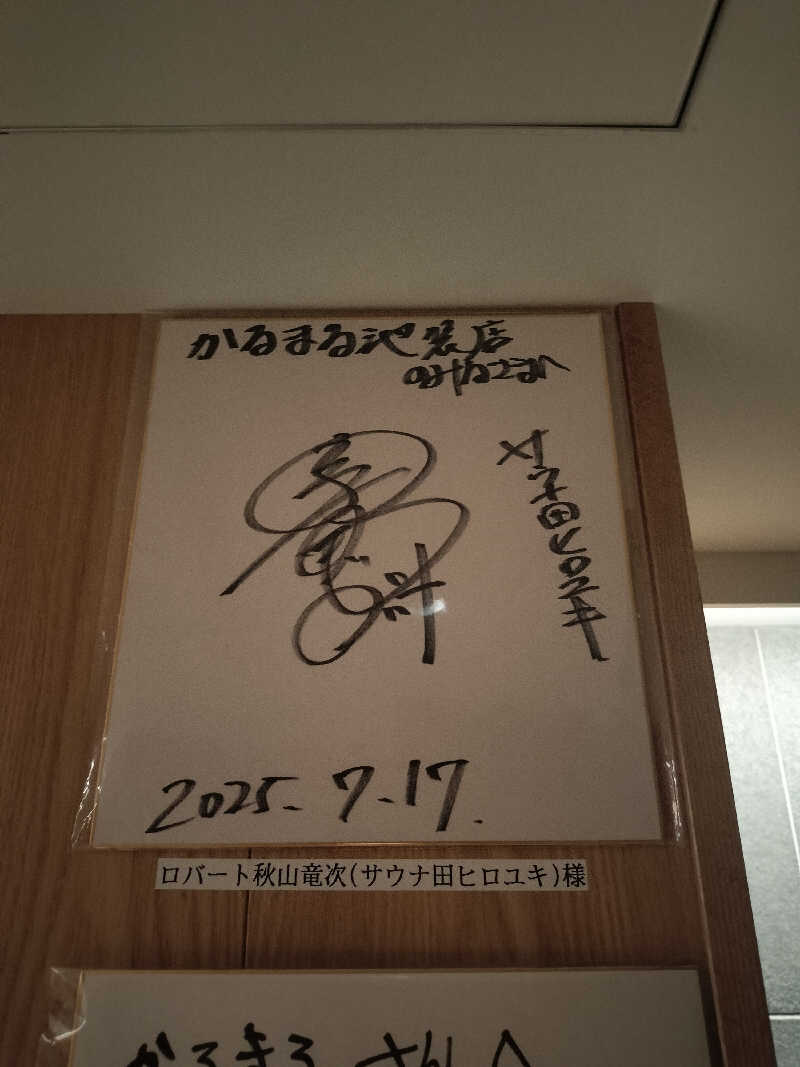 かるまる池袋店
のみなさまへ
サウナ田ヒロユキ
2025.7.17.
ロバート秋山竜次(サウナ田ヒロユキ)様
かるまるさんへ